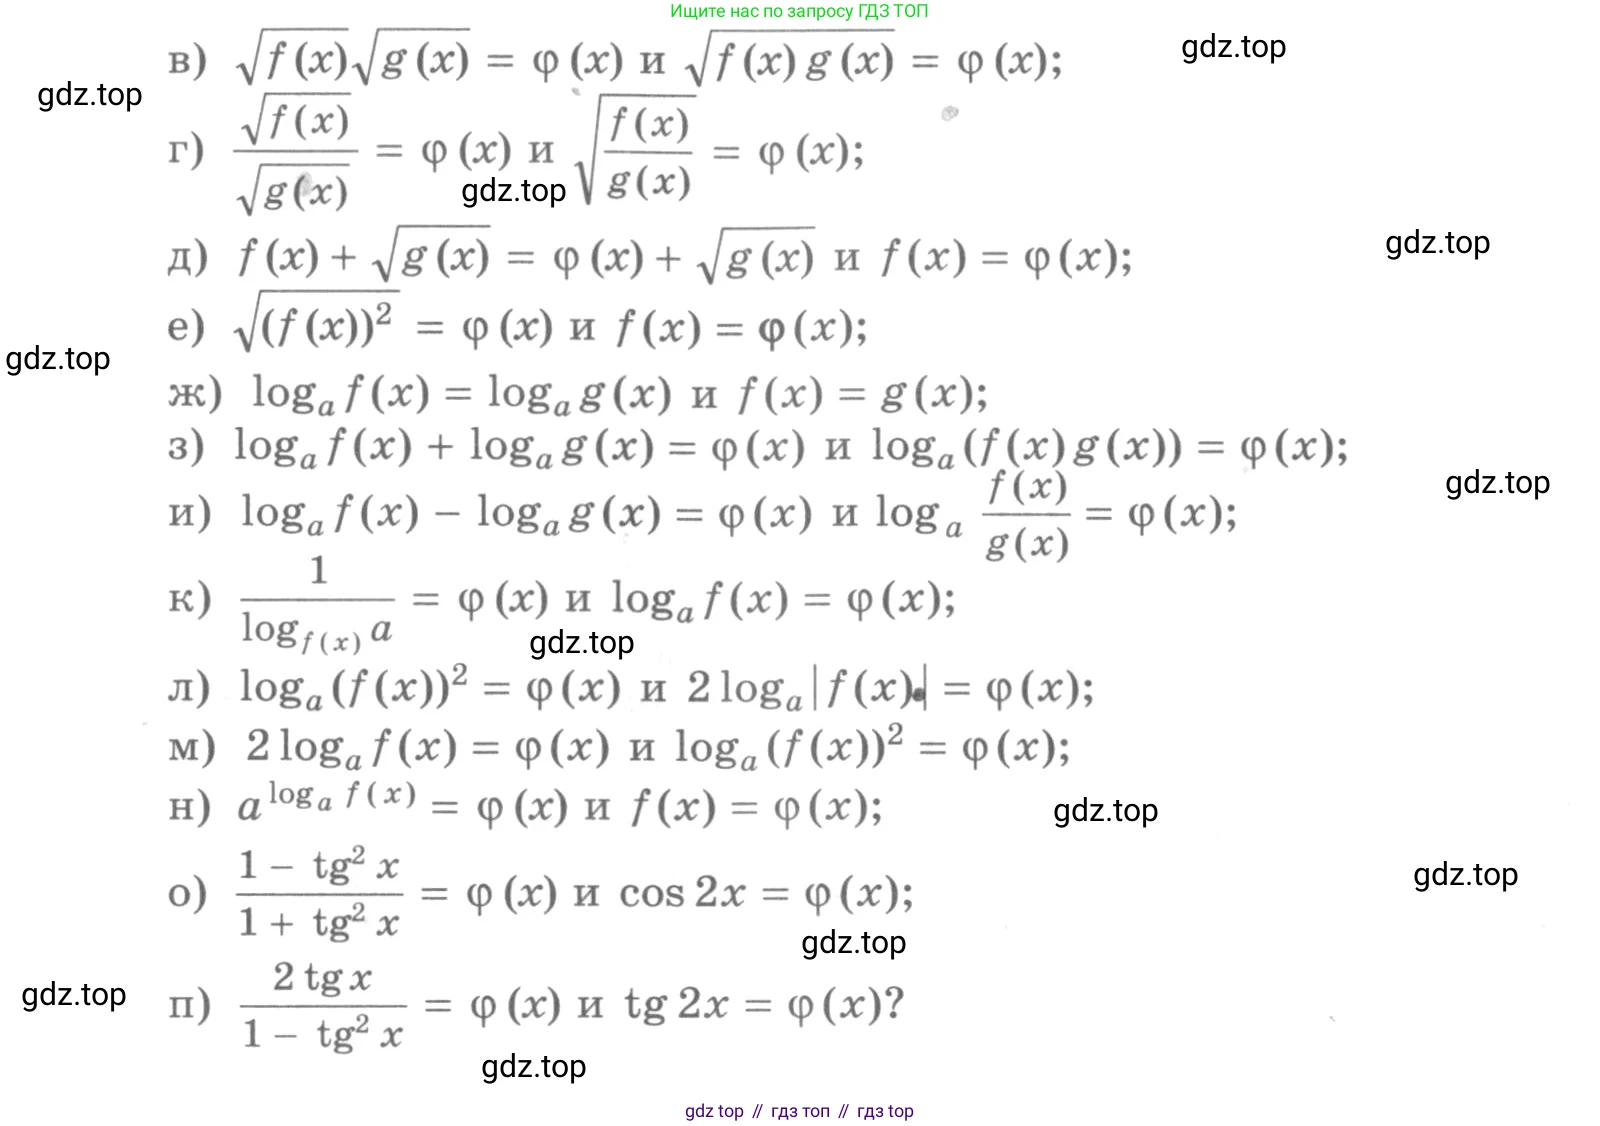 Ищите нас по запросу ГДЗ ТОП
в) √f(x)√g(x) = φ(x) и √f(x)g(x) = φ(x);
gdz.top
gdz.top
г) √f(x)/√g(x) = φ(x) и √(f(x)/g(x)) = φ(x);
gdz.top
д) f(x) + √g(x) = φ(x) + √g(x) и f(x) = φ(x);
gdz.top
е) √(f(x))² = φ(x) и f(x) = φ(x);
gdz.top
ж) logₐ f(x) = logₐ g(x) и f(x) = g(x);
з) logₐ f(x) + logₐ g(x) = φ(x) и logₐ (f(x)g(x)) = φ(x);
gdz.top
и) logₐ f(x) − logₐ g(x) = φ(x) и logₐ f(x)/g(x) = φ(x);
к) 1/log_f(x) a = φ(x) и logₐ f(x) = φ(x);
gdz.top
л) logₐ (f(x))² = φ(x) и 2 logₐ |f(x)| = φ(x);
м) 2 logₐ f(x) = φ(x) и logₐ (f(x))² = φ(x);
н) a^(logₐ f(x)) = φ(x) и f(x) = φ(x);
gdz.top
о) (1 − tg² x)/(1 + tg² x) = φ(x) и cos 2x = φ(x);
gdz.top
gdz.top
п) (2 tg x)/(1 − tg² x) = φ(x) и tg 2x = φ(x)?
gdz.top
gdz.top
gdz top // гдз топ // gdz top